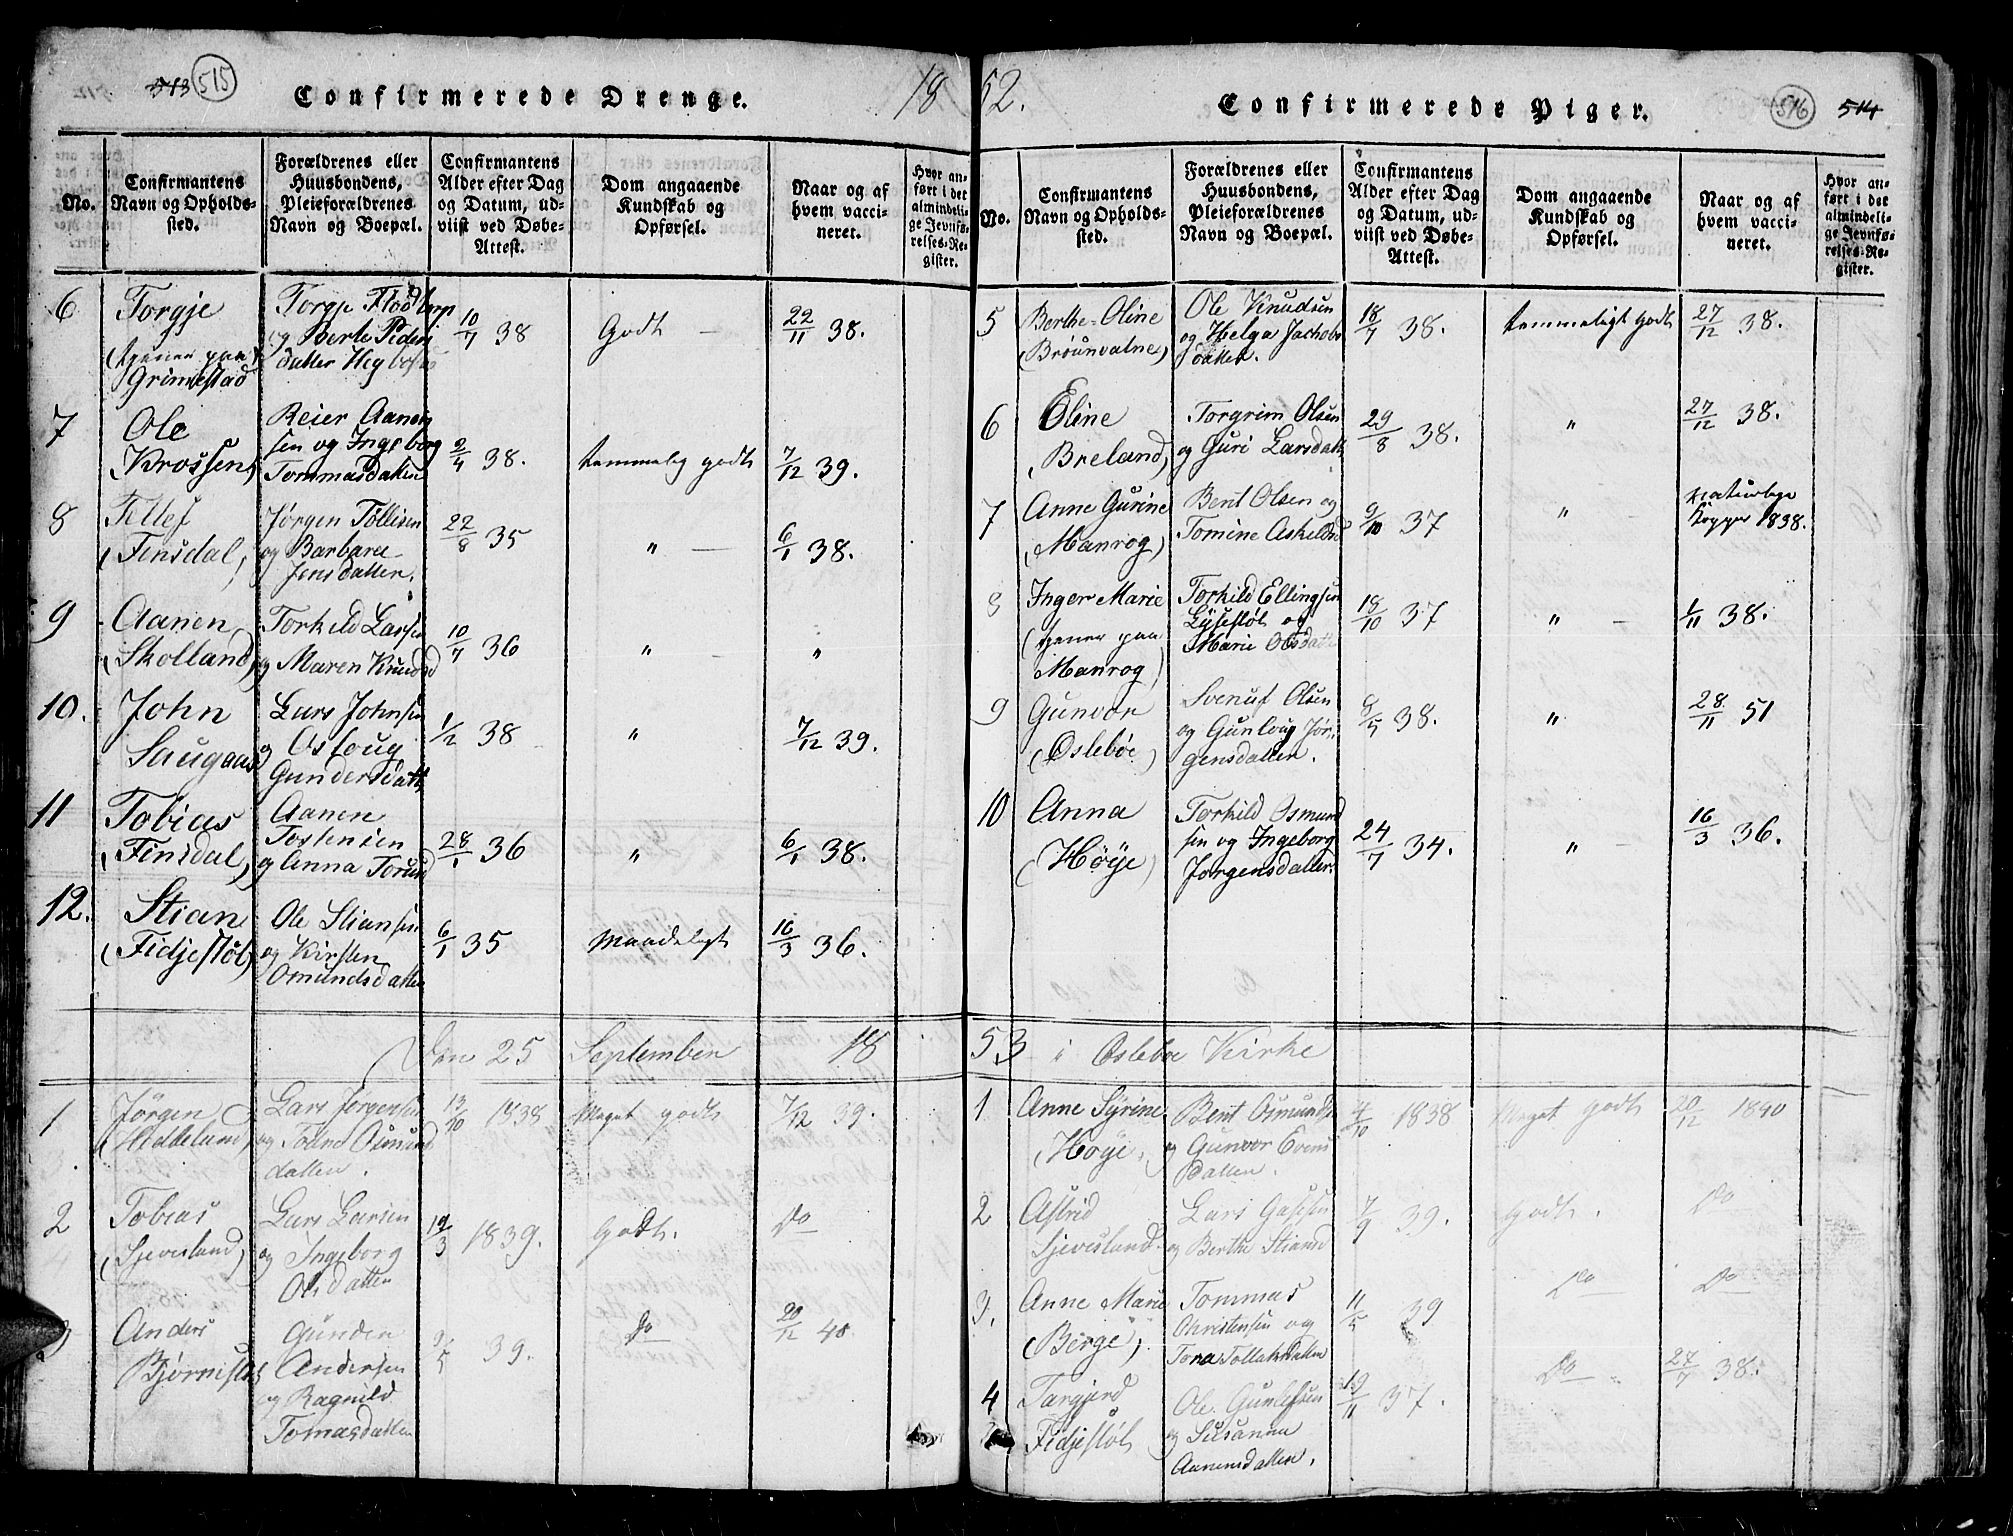 513 515
Confirmerede Drenge.
18
No.
Confirmantens
Navn og Opholds-
sted.
Forældrenes eller
Huusbondens,
Pleieforældrenes
Navn og Boepæl.
Confirmantens
Alder efter Dag
og Datum, ud-
viist ved Døbe-
Attest.
Dom angaaende
Kundskab og
Opførsel.
Naar og af
hvem vacci-
neret.
Hvor an-
ført i det
almindeli-
ge Jevnfø-
relses-Re-
gister.
6
Torgje
(tjener paa
Grimestad
og Berte Peders
datter
10/7 38
Godt
22/11 38.
7
Ole
Krossen
Reier Aanen
sen og Ingeborg
Tommasdatter
2/4 38.
temmelig godt
7/12 39.
8
Tellef
(Finsdal)
Jørgen Tollisen
og Barbara
Jensdatter.
22/8 35
"
6/1 38.
9
Aanen
(Skolland)
Torkild Larsen
og Maren Knudsd
10/7 36
"
"
10.
John
Saugaas
Lars Johnsen
og Osloug
Gundersdatt
1/12 38
"
7/12 39.
11
Tobias
(Finsdal)
Aanen
Tostensen
og Anna Torusd
28/1 36
"
6/1 38.
12.
Stian
(Fidjestøl)
Ole Stiansen
og Kirsten
Omundsdatter
6/1 35
Maadeligt
16/3 36.
Den 25 September 18
1
Jørgen
Hidbeland
Lars Jørgensen
og Tone Osmund
datter.
13/10 1838
Meget godt
7/12 39.
2
Tobias
Sjevesland)
Lars Larsen
og Ingeborg
Olsdatter
19/3 1839.
Godt.
Do
3
Anders
Bjørnestøl
Gunder
Andersen
og Ragnild
Tomasdatter
9/5 39.
Do
20/12 40.
52.
Confirmerede Piger.
516 514
No.
Confirmantens
Navn og Opholds-
sted.
Forældrenes eller
Huusbondens,
Pleieforældrenes
Navn og Boepæl.
Confirmantens
Alder efter Dag
og Datum, ud-
viist ved Døbe-
Attest.
Dom angaaende
Kundskab og
Opførsel.
Naar og af
hvem vacci-
neret.
Hvor an-
ført i det
almindeli-
ge Jevnfø-
relses-Re-
gister.
5
Berthe Oline
Ole Knudsen
og Helga Jachobs
datter.
18/7 38.
temmeligt godt
27/12 38.
6
Eline
(Breland)
Torgrim Olsen
og Guri Larsdatt
29/8 38.
"
27/12 38.
7
Anne Gurine
(Manrog)
Bent Olsen og
Tomine Askeldsd
9/10 37
"
naturlige
Kopper 1838.
8
Inger Marie
(tjener paa
Manrog)
Torkild Ellingsen
Lysestøl og
Marie Olsdatt
18/10 37
"
1/11 38.
9
Gunvor
(Oslebøe)
Svenuf Olsen
og Gunloug Jør
gensdatter.
8/5 38.
"
28/11 51
10
Anna
(Høye)
Torkild Osmund
sen og Ingeborg
Jørgensdatter.
24/7 34.
"
16/3 36.
53 i Oslebøe Kirke
1
Anne Syrine
Høye.
Bent Osmunds
og Gunvor Evens
datter.
4/10 1838
Meget godt
20/12 1840
2
Astrid
Sjevesland.
Lars
og Berthe Stiansd
7/9 39.
godt.
Do
3.
Anne Marie
(Berge)
Tommas
Christensen og
Tora Tollaksdatter
11/5 39
Do
Do
4
Targjerd
Fidjestøl
Ole Gunlefsen
og Susanna
Aanensdatter.
19/11 37.
Do
27/7 38.